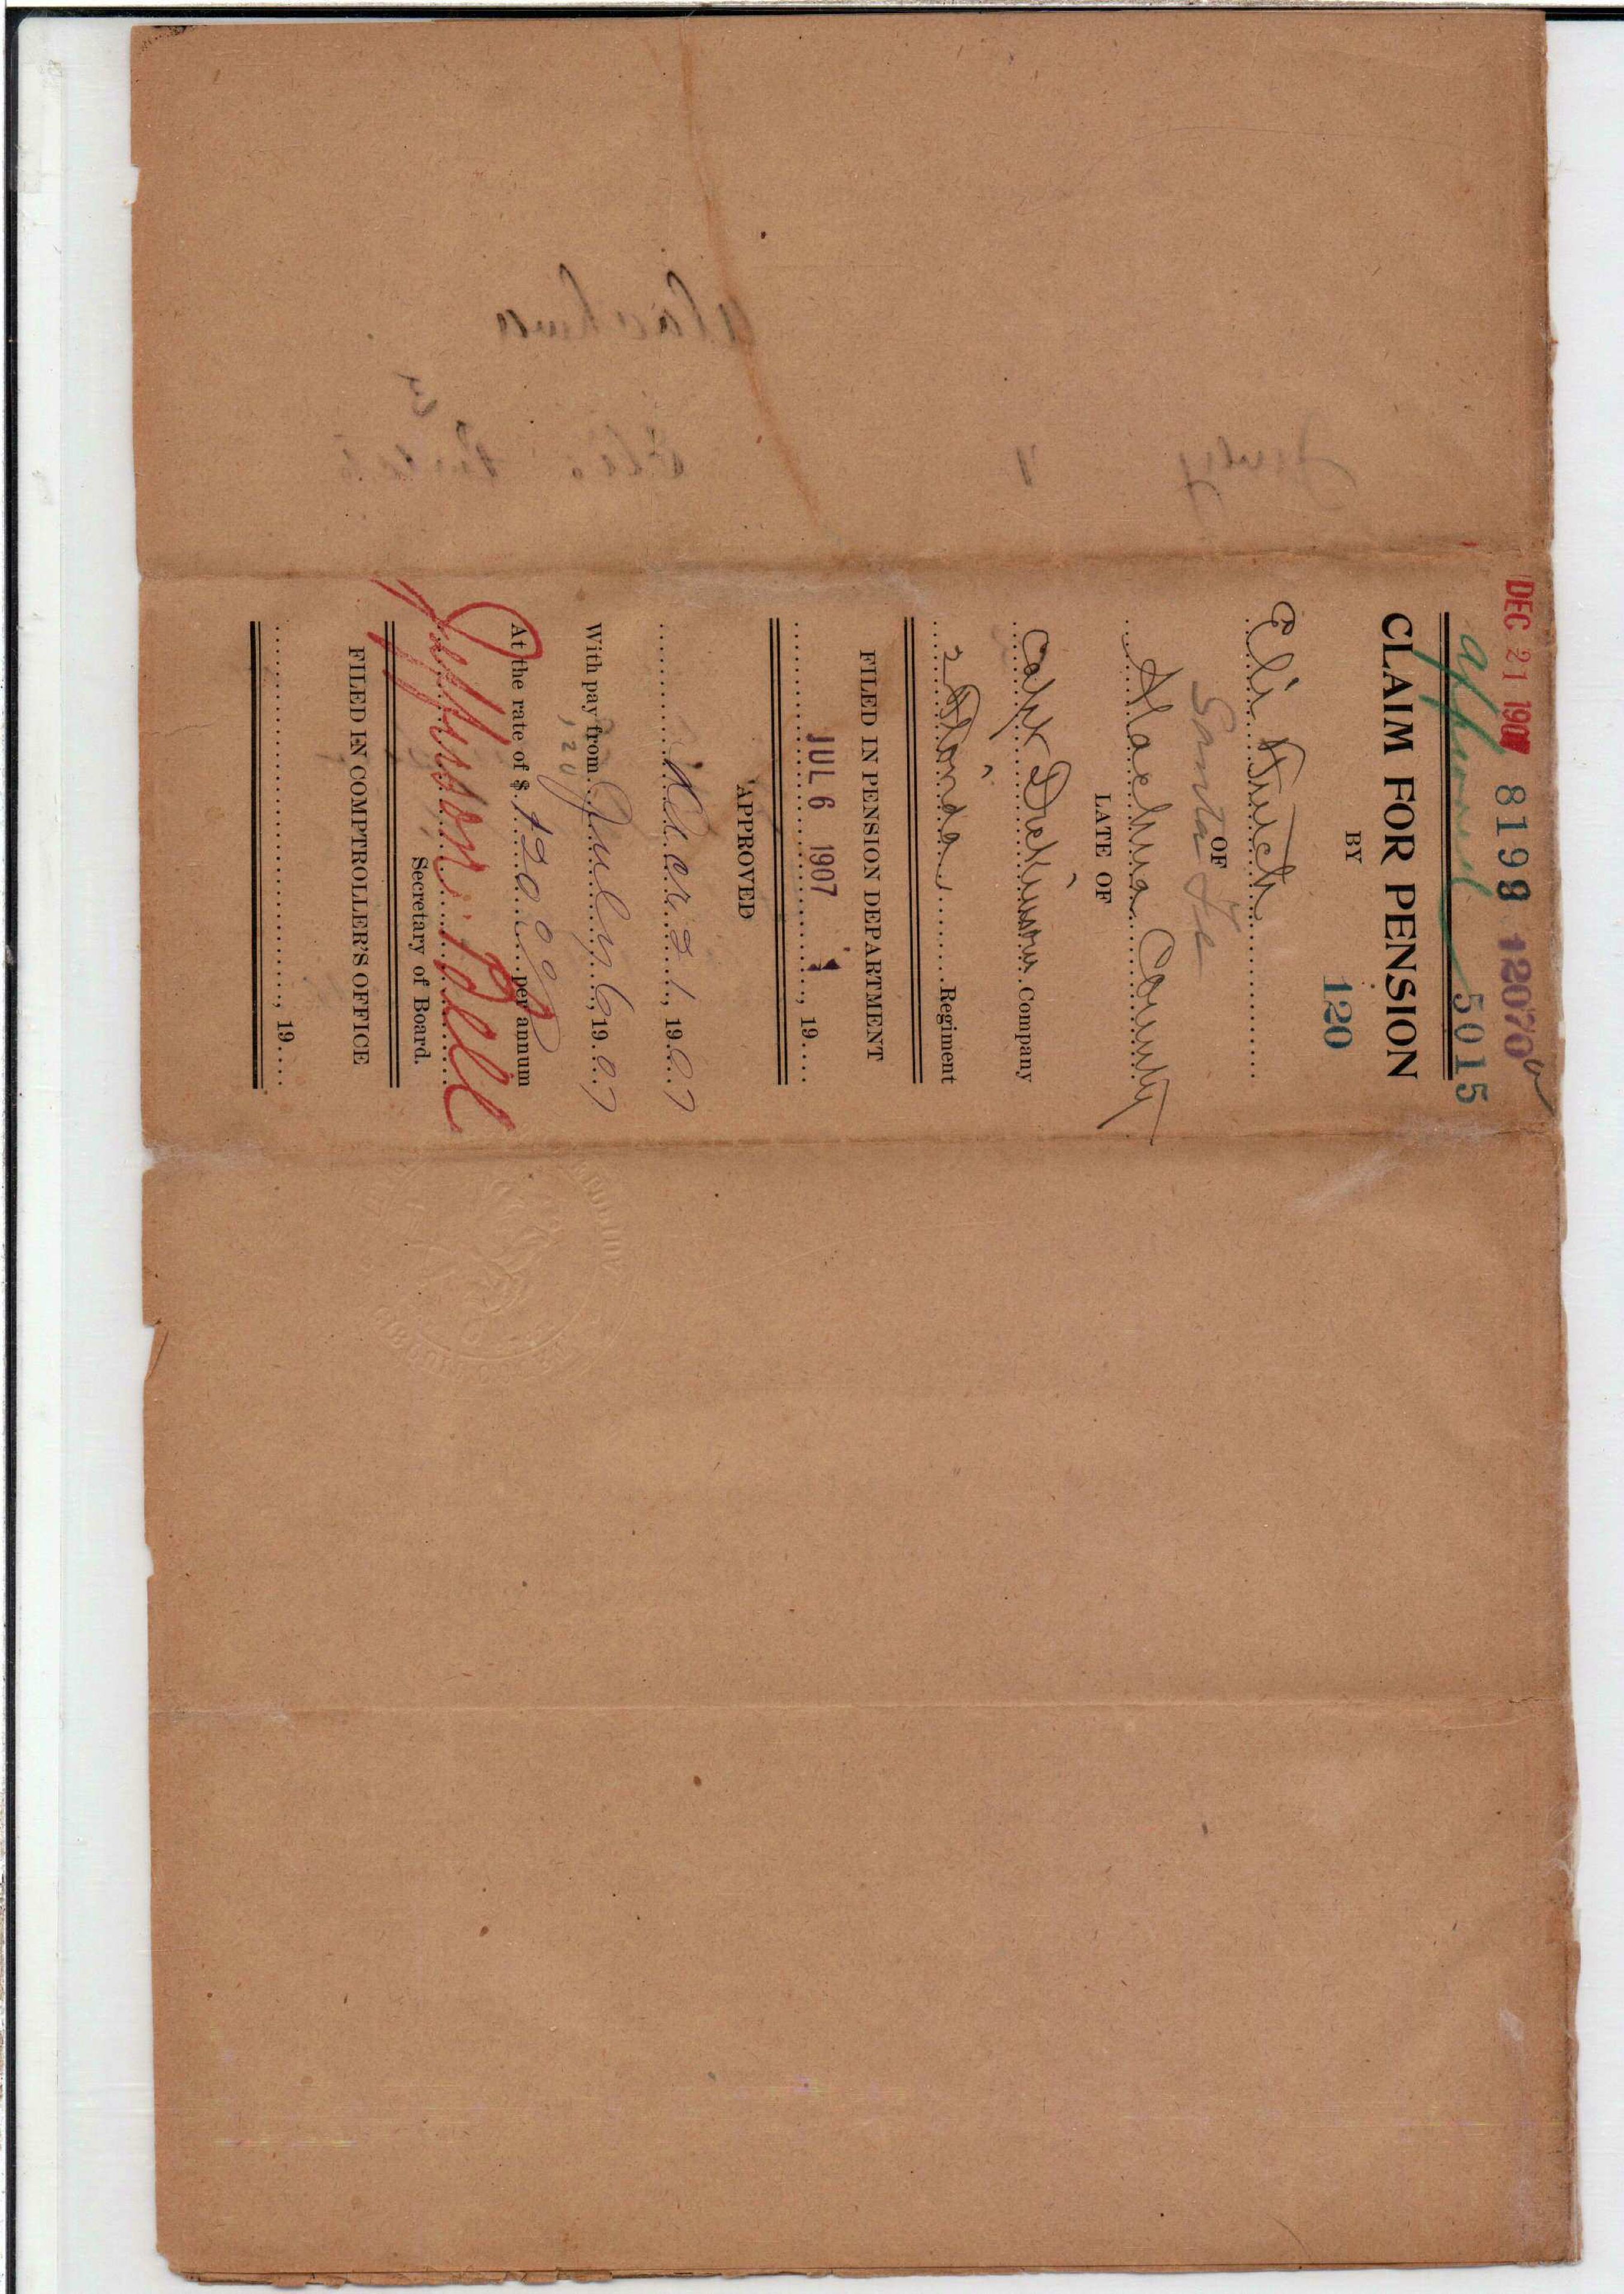 DEC 21 1907 8198 12070
approved 5015
CLAIM FOR PENSION
BY 120
Eli
OF
Santa Fe
Alachua County
LATE OF
Capt Dickison Company
2 Florida Regiment
FILED IN PENSION DEPARTMENT
JUL 6 1907, 19
APPROVED
1, 1907
With pay from July 6, 1907
120
At the rate of $ 120.00 per annum
Jefferson Bell
Secretary of Board.
FILED IN COMPTROLLER'S OFFICE
, 19